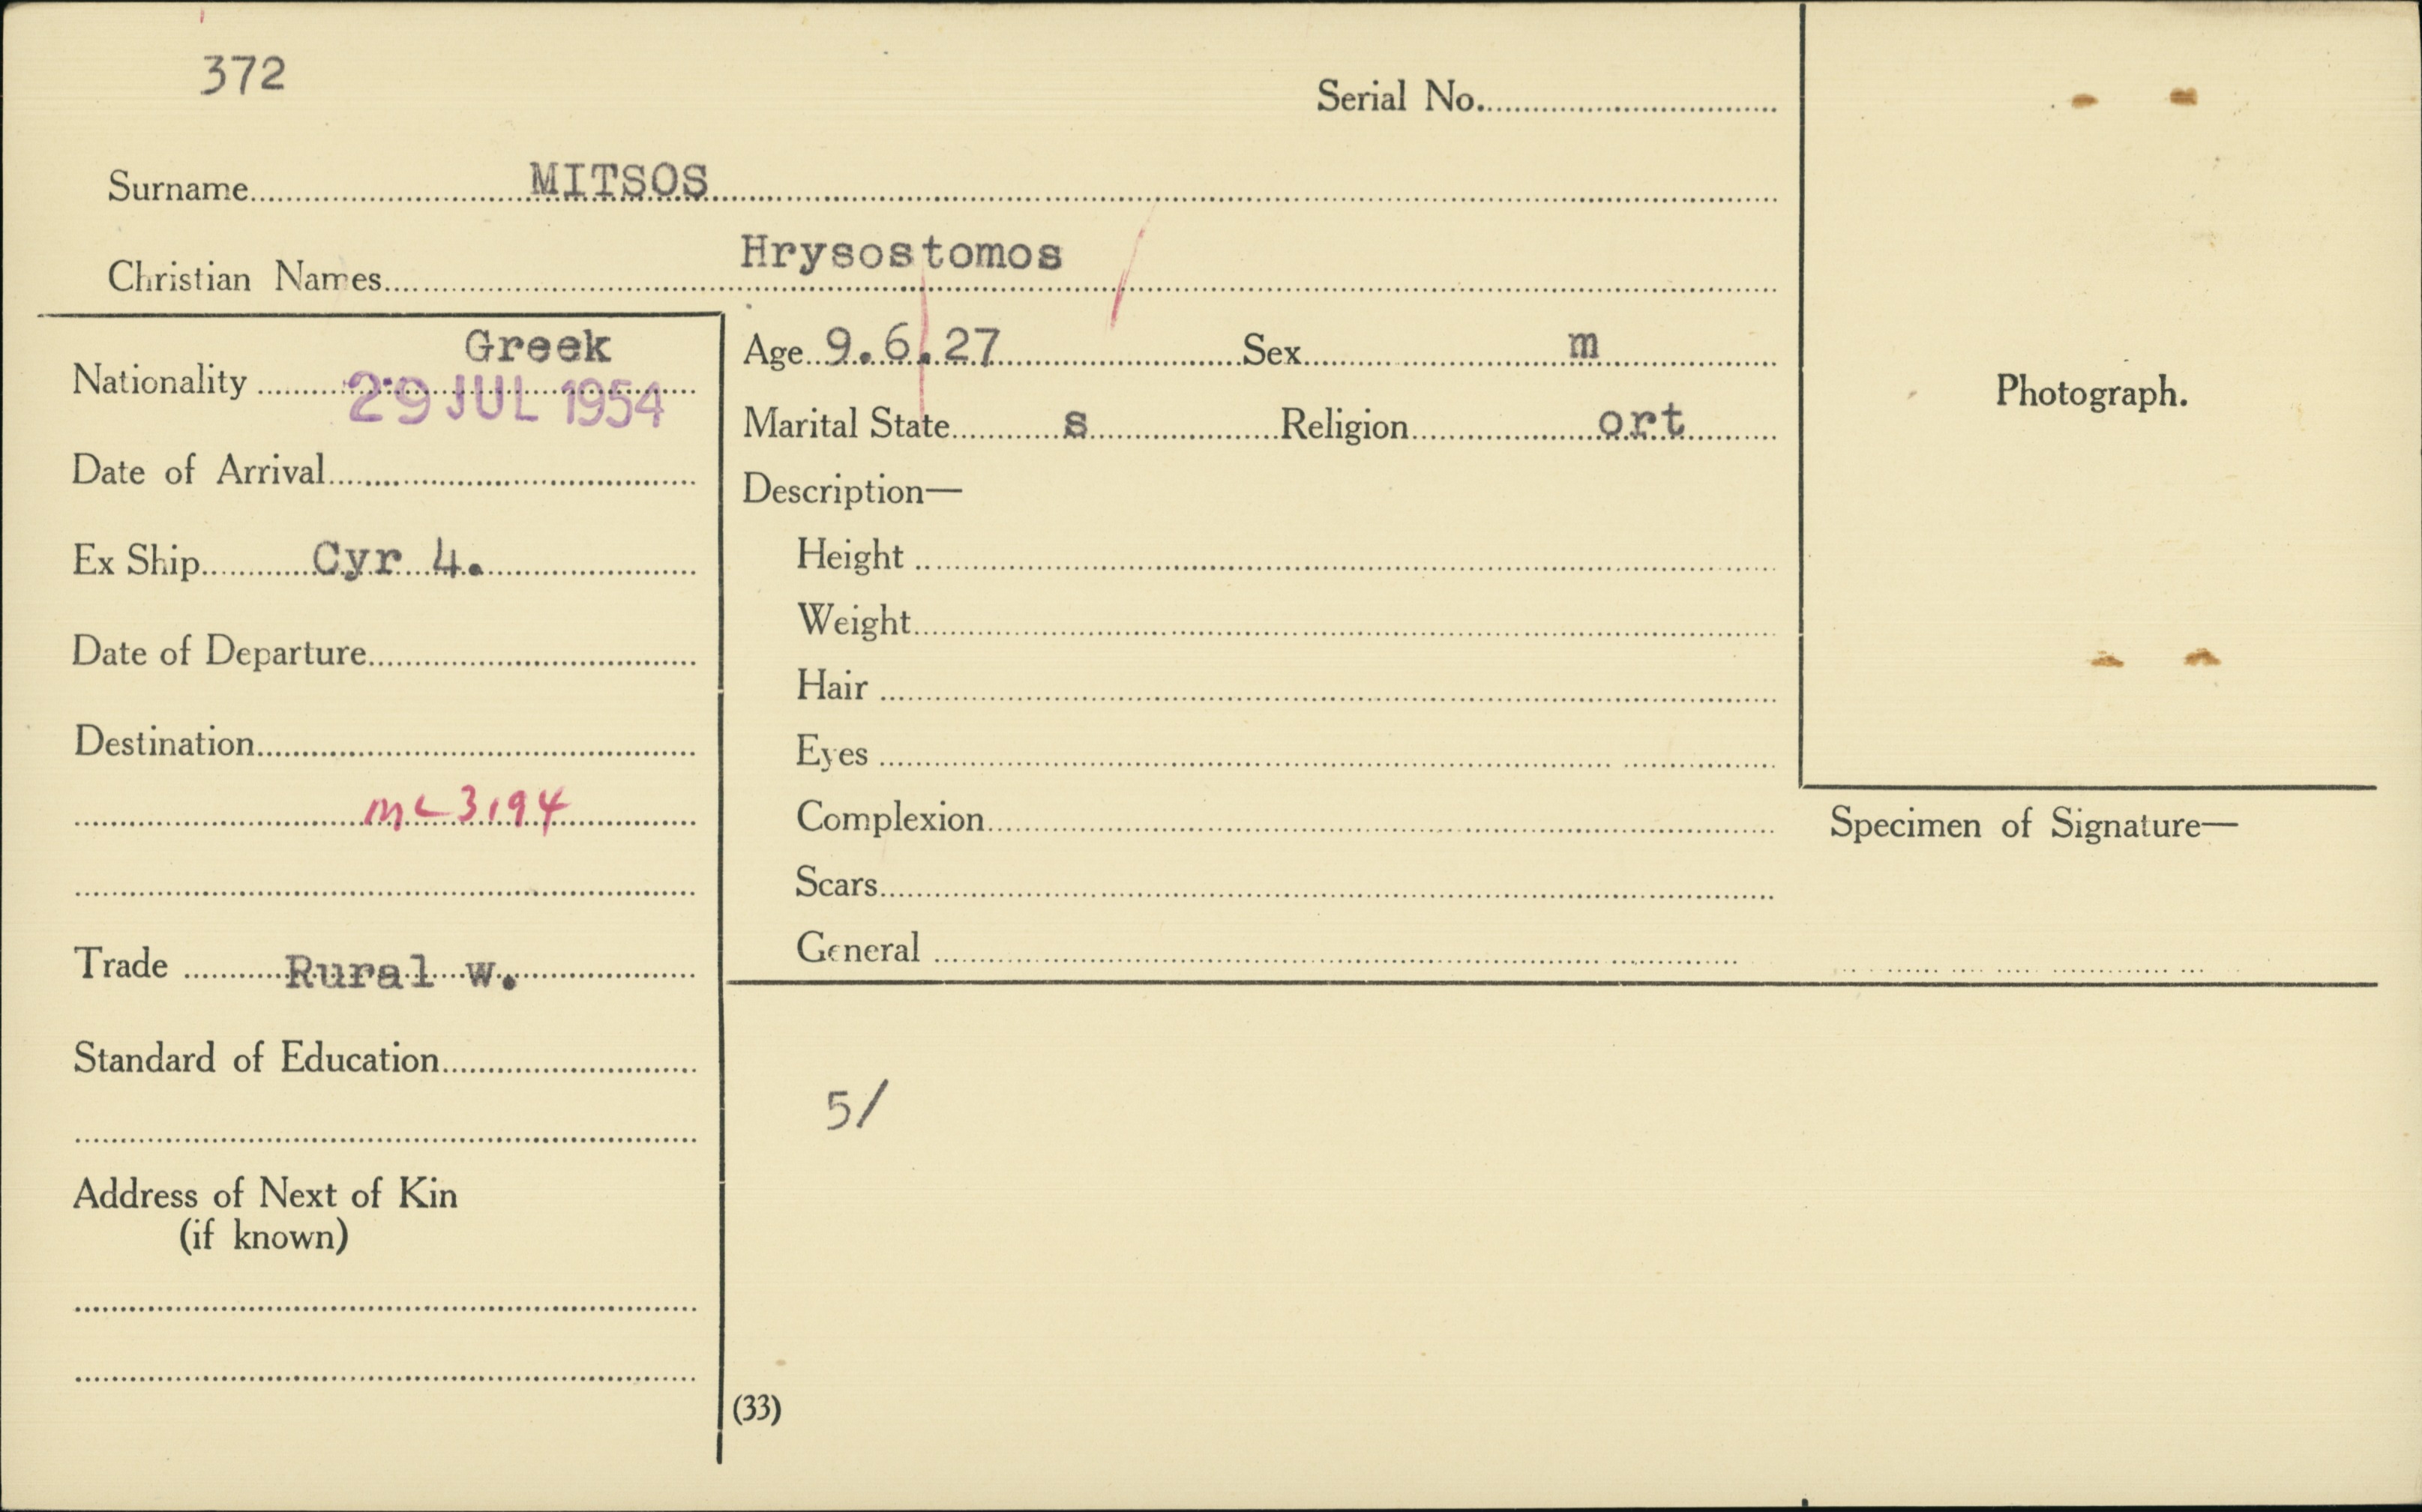 372
Serial No.
Surname MITSOS
Christian Names Hrysostomos
Nationality Greek
29 JUL 1954
Date of Arrival
Ex Ship Cyr 4.
Date of Departure
Destination
mc 3194
Trade Rural w.
Standard of Education
Address of Next of Kin
(if known)
Age 9.6.27 Sex m
Marital State s Religion ort
Description—
Height
Weight
Hair
Eyes
Complexion
Scars
General
5/
(33)
Photograph.
Specimen of Signature—